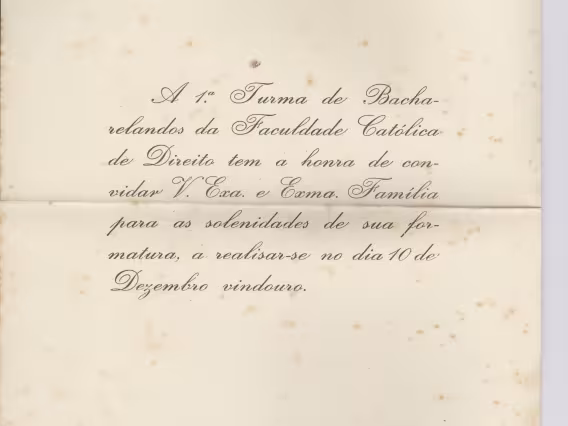 A 1ª Turma de Bacha-
relandos da Faculdade Católica
de Direito tem a honra de con-
vidar V. Exa. e Exma. Família
para as solenidades de sua for-
matura, a realisar-se no dia 10 de
Dezembro vindouro.